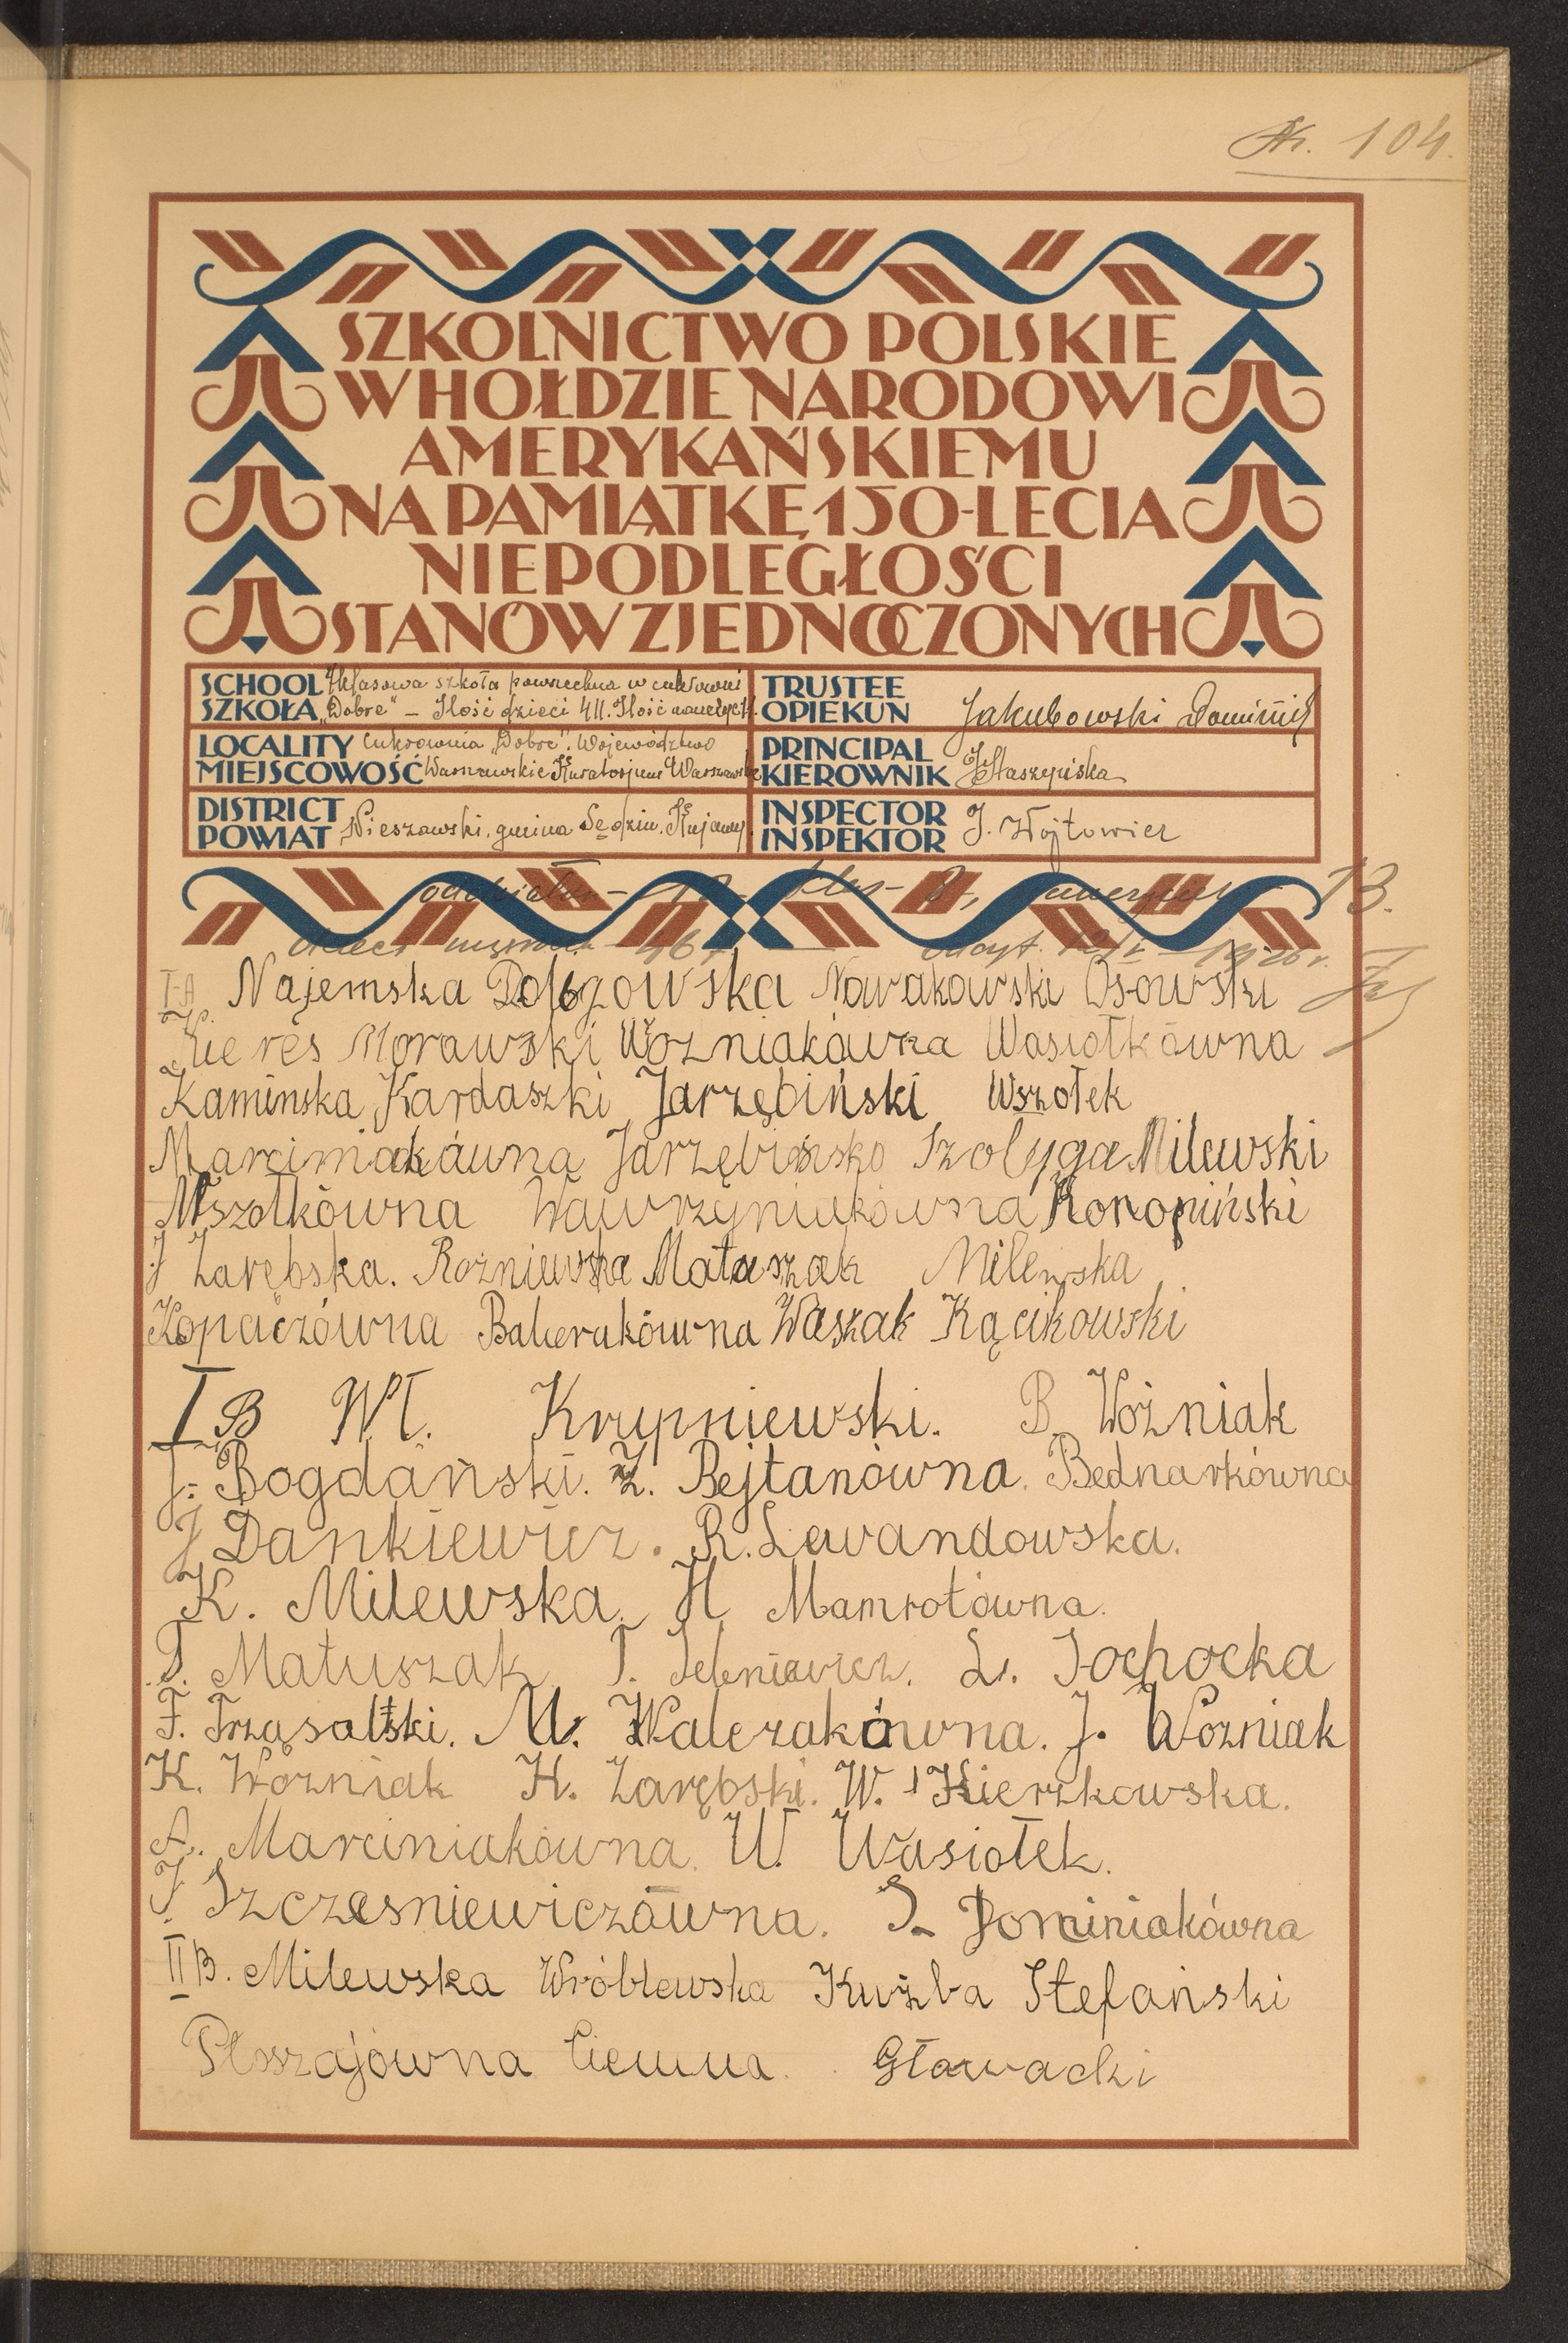 Nr. 104.
SZKOLNICTWO POLSKIE
W HOŁDZIE NARODOWI
AMERYKAŃSKIEMU
NA PAMIĄTKĘ 150-LECIA
NIEPODLEGŁOŚCI
STANÓW ZJEDNOCZONYCH
SCHOOL 7 klasowa szkoła powszechna w cukrowni
SZKOŁA „Dobre" – Ilość dzieci 411. Ilość
TRUSTEE
OPIEKUN Jakubowski Dominik
LOCALITY Cukrownia „Dobre". Województwo
MIEJSCOWOŚĆ Warszawskie Kuratorjum Warszawskie
PRINCIPAL
KIEROWNIK Staszyńska
DISTRICT
POWIAT Nieszawski, gmina Sędzin, Kujawy
INSPECTOR
INSPEKTOR J. Wójtowicz
13.
I-A Najemska Nowakowski Osowski
Kieres Morawski Woźniakówna Wasiołkówna
Kamińska Kardaszki Jarzębiński Wszołek
Marcimakówna Jarzębińska Szołyga Milewski
Wszołkówna Wawrzyniakówna Konopiński
J Zarębska. Rozniewska Mataszak Milewska
Kopaczówna Waszak Kącikowski
I B Wł. Krupniewski. B. Woźniak
J. Bogdański. Z. Rejtanówna. Bednarkówna
J Dankiewicz. R. Lewandowska.
K. Milewska. H Mamrotówna.
T. Matuszak T. L. Sochocka
F. Trząsalski. M. Walczakówna. J. Wozniak
K. Woźniak H. Zarębski. W. Kierzkowska.
A. Marciniakówna. W. Wasiołek.
J Szczesniewiczówna. S. Dominiakówna
II B. Milewska Wróblewska Kuźba Stefański
Płoszajówna Ciemna Głowacki